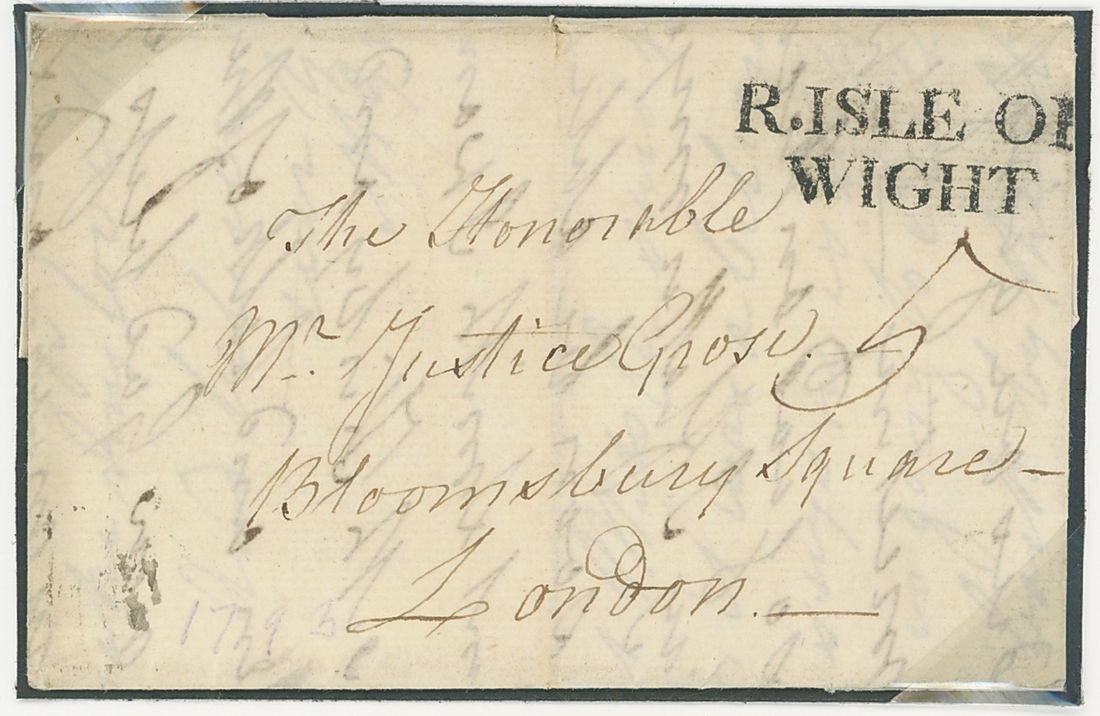 R. ISLE OF
WIGHT
The Honorable
Mr. Justice Grose.
5
Bloomsbury Square –
London. —
1793